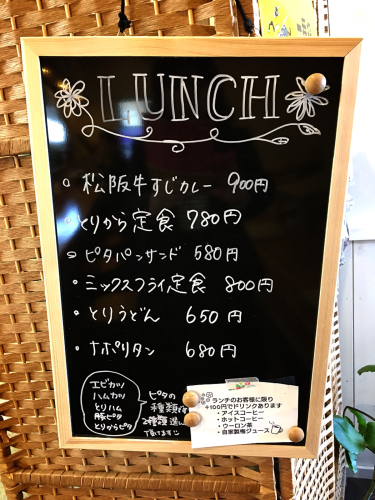 LUNCH
・松阪牛すじカレー 900円
・とりから定食 780円
・ピタパンサンド 580円
・ミックスフライ定食 800円
・とりうどん 650円
・ナポリタン 680円
エビカツ
ハムカツ
とりハム
豚ピタ
とりからピタ
ピタの
種類は
2種類選んで
頂けます
ランチのお客様に限り
+100円でドリンクあります
・アイスコーヒー
・ホットコーヒー
・ウーロン茶
・自家製梅ジュース